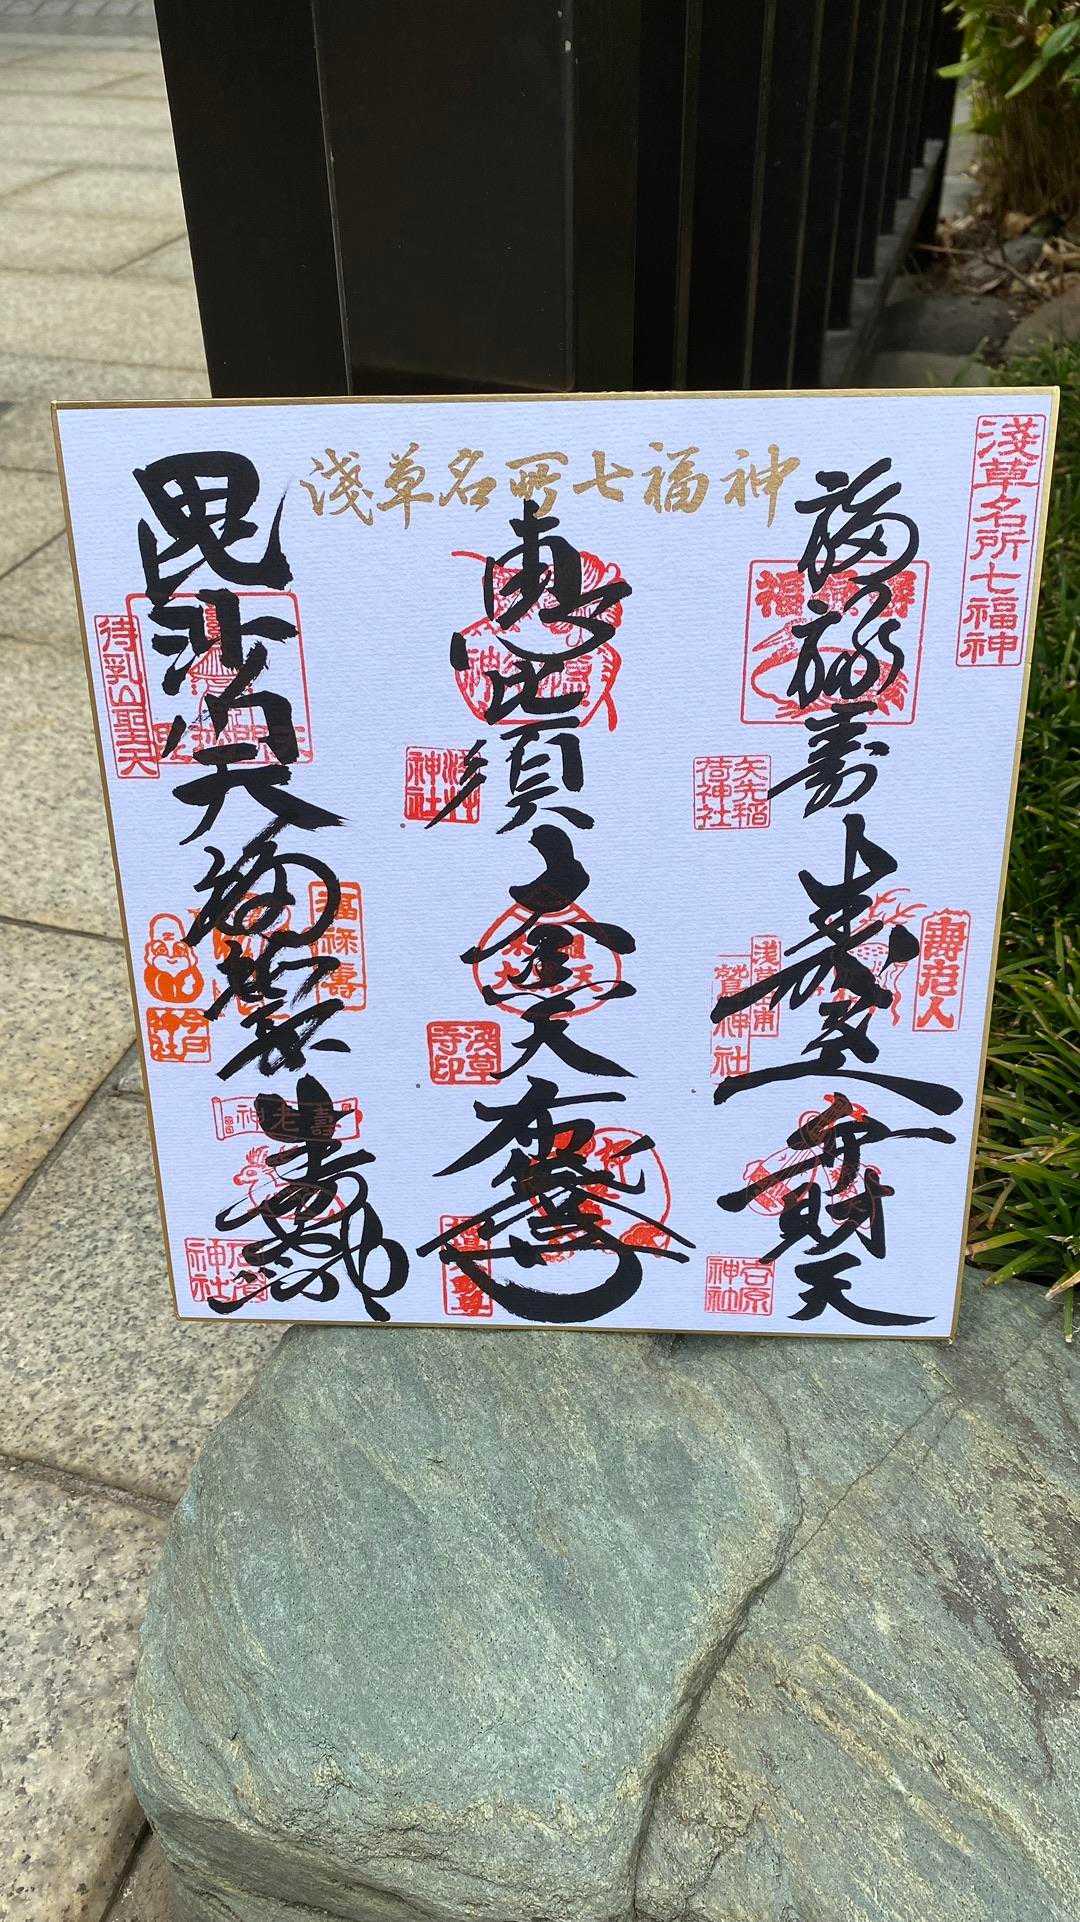 淺草名所七福神
淺草名所七福神
福禄寿
矢先稲
荷神社
寿老人
壽老人
鷲神社
弁財天
吉原
神社
恵比須
淺草
神社
大黒天
淺草
寺印
布袋尊
毘沙門天
待乳山聖天
福禄寿
福禄壽
今戸
神社
壽老神
石濱
神社